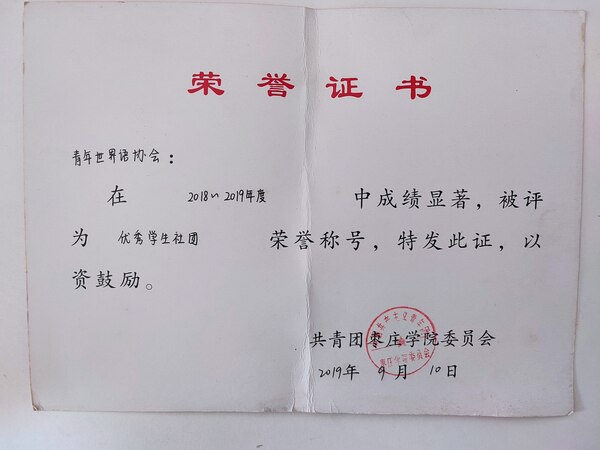 荣誉证书
青年世界语协会：
在 2018~2019年度 中成绩显著，被评
为 优秀学生社团 荣誉称号，特发此证，以
资鼓励。
共青团枣庄学院委员会
2019年 9月 10日